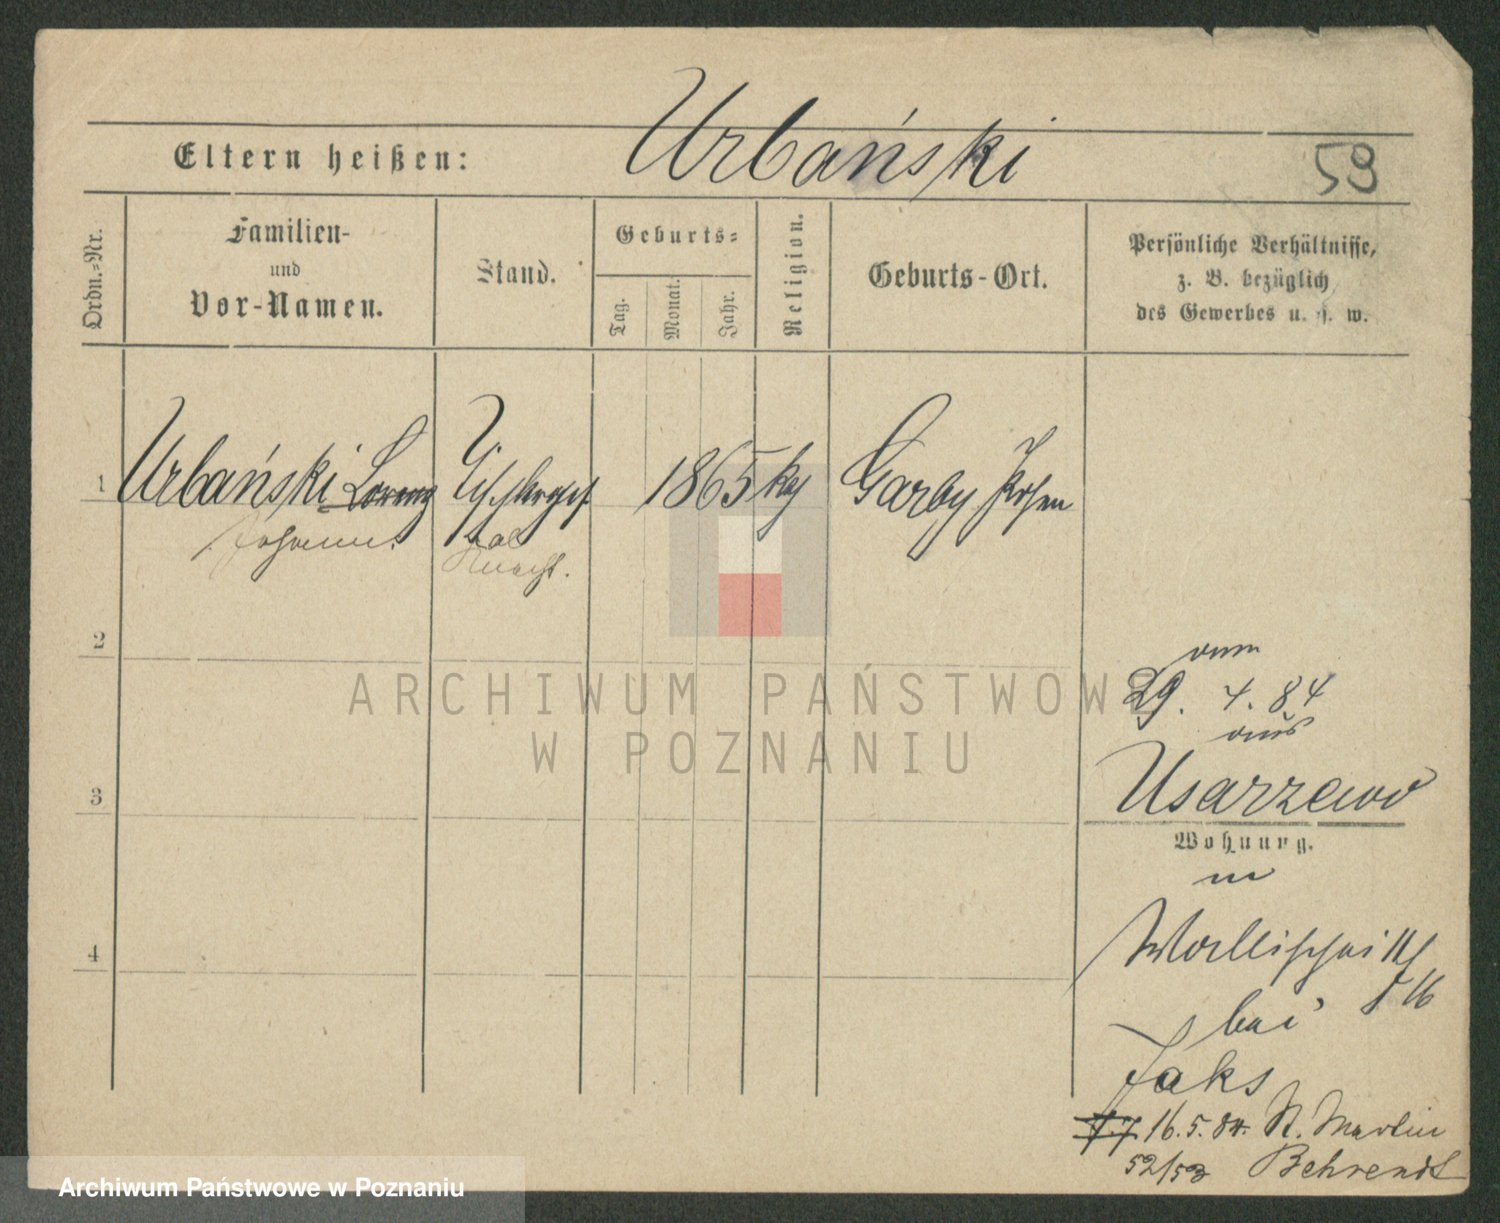 Urbański
Eltern heißen:
59
Ordn.-Nr.
Familien-
und
Vor-Namen.
Stand.
Geburts-
Tag.
Monat.
Jahr.
Religion.
Geburts-Ort.
Persönliche Verhältnisse,
z. B. bezüglich
des Gewerbes u. s. w.
1 Urbański Lorenz 1865 kaj Garby Posen
Johann
Knecht.
2
3
4
vom
29. 4. 84
aus
Usarzewo
Wohnung.
in
Wallischei
bei
Jaks
16. 5. 84. St. Martin
52/53 Behrendt
ARCHIWUM PAŃSTWOWE
W POZNANIU
Archiwum Państwowe w Poznaniu